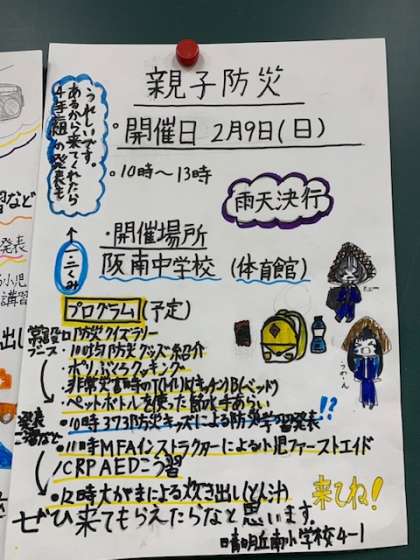 親子防災
・開催日 2月9日(日)
・10時〜13時
雨天決行
うれしいです。
あるから来てくれたら
4年3組の発表も
・開催場所
阪南中学校 (体育館)
プログラム (予定)
学習
ブース
防災クイズラリー
・100均防災グッズ紹介
・ポリぶくろクッキング
・非常災害時のT(トイレ)K(キッチン)B(ベッド)
・ペットボトルを使った節水手あらい
発表
・10時373防災キッズによる防災学習発表!?
・11時MFAインストラクターによる小児ファーストエイド
/CRPAEDこう習
・12時大がまによる炊き出し(とん汁)
来てね!
ぜひ来てもらえたらなと思います。
晴明丘南小学校4-1
など
発表
小児
講習
出し